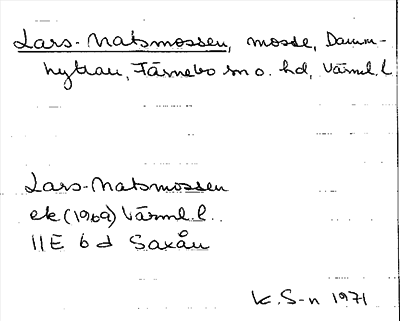 Lars-Matsmossen, mosse, Damm-
hyttan, Färnebo sn o. hd, Värml. l
Lars-Matsmossen
ek (1969) Värml. l.
11E 6d Saxån
K. S-n 1971